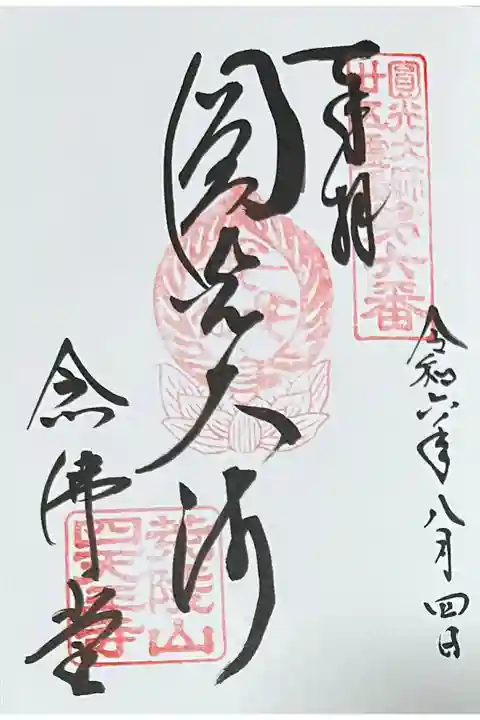 圓光大師
廿五霊場第六番
奉拝
令和六年八月四日
圓光大師
念佛堂
荒陵山
四天王寺